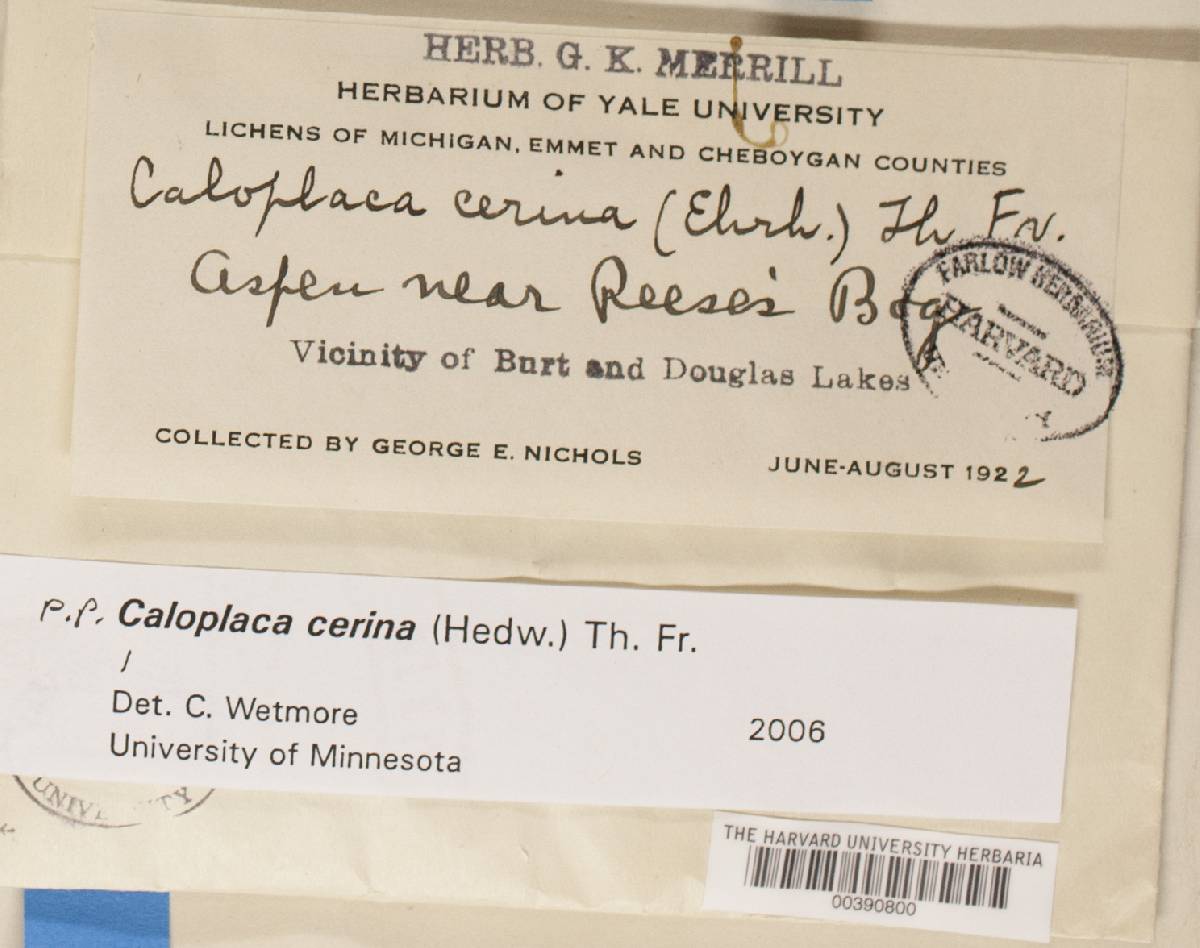 HERB. G. K. MERRILL
HERBARIUM OF YALE UNIVERSITY
LICHENS OF MICHIGAN, EMMET AND CHEBOYGAN COUNTIES
Caloplaca cerina (Ehrh.) Th Fr.
Aspen near Reese's Bog
FARLOW HERBARIUM
HARVARD
Vicinity of Burt and Douglas Lakes
COLLECTED BY GEORGE E. NICHOLS JUNE-AUGUST 1922
p.p. Caloplaca cerina (Hedw.) Th. Fr.
Det. C. Wetmore 2006
University of Minnesota
THE HARVARD UNIVERSITY HERBARIA
00390800